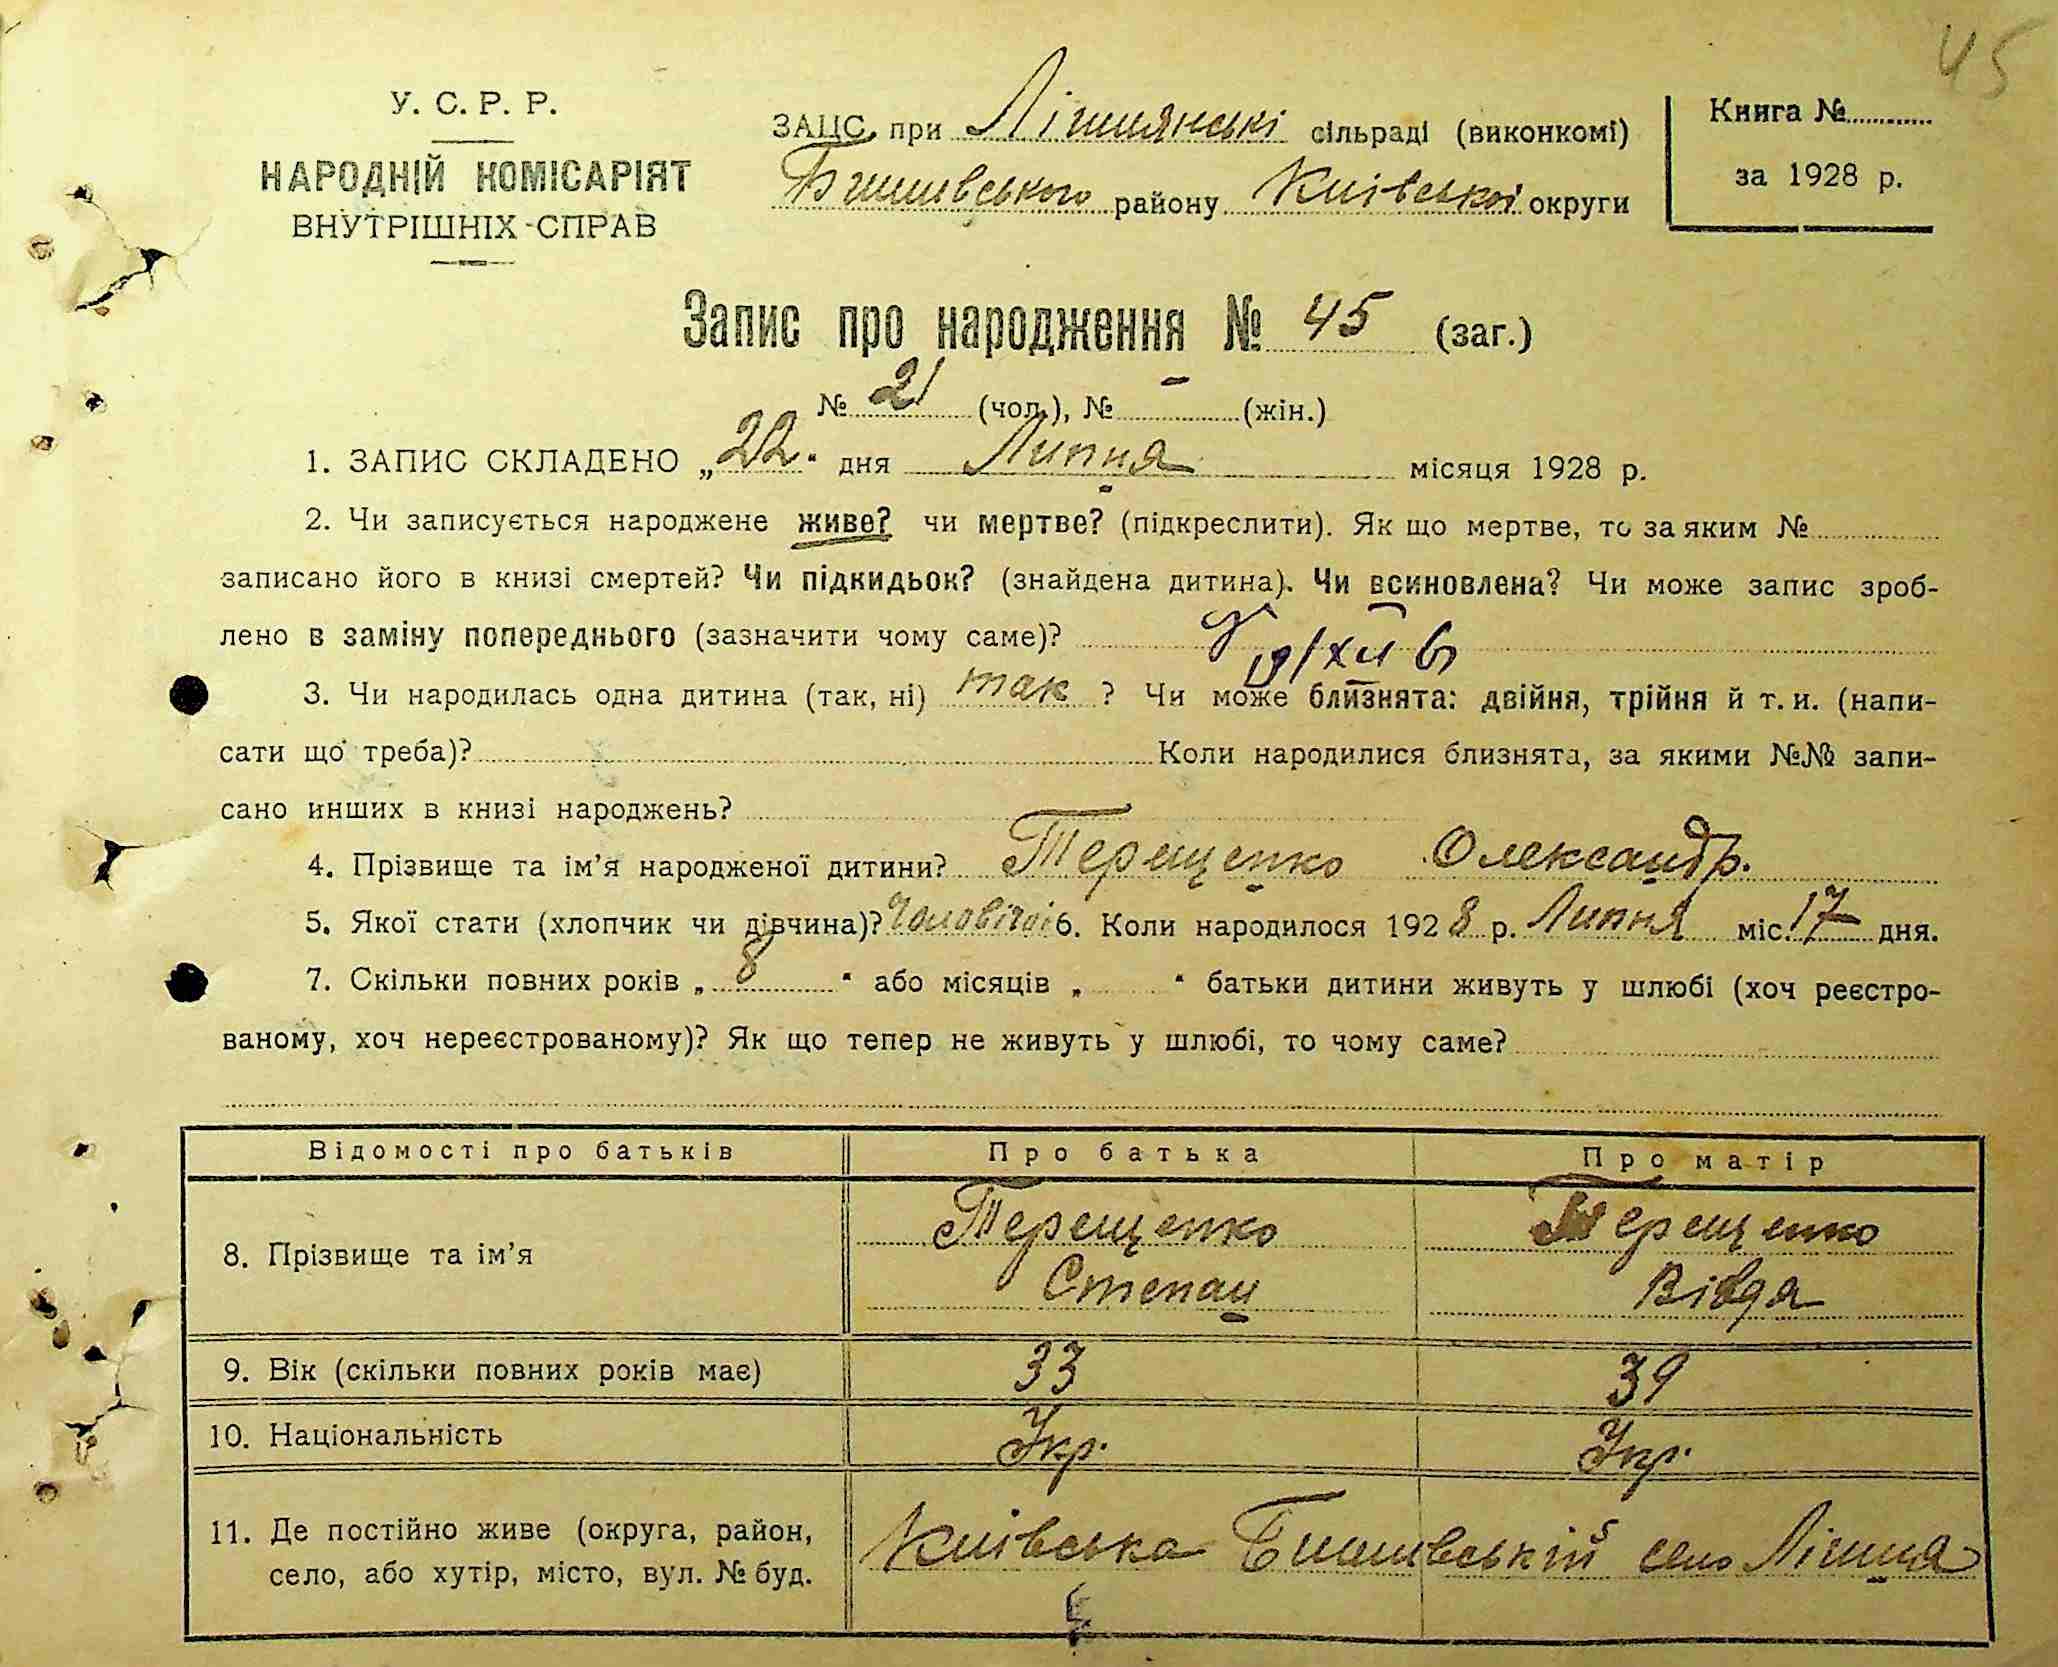 45
У. С. Р. Р.
НАРОДНІЙ КОМІСАРІЯТ
ВНУТРІШНІХ СПРАВ
ЗАЦС при Лішнянські сільраді (виконкомі)
Бишівського району Київської округи
Книга №
за 1928 р.
Запис про народження № 45 (заг.)
№ 21 (чол.), № - (жін.)
1. ЗАПИС СКЛАДЕНО „22" дня Липня місяця 1928 р.
2. Чи записується народжене живе? чи мертве? (підкреслити). Як що мертве, то за яким №
записано його в книзі смертей? Чи підкидьок? (знайдена дитина). Чи всиновлена? Чи може запис зроб-
лено в заміну попереднього (зазначити чому саме)?
3. Чи народилась одна дитина (так, ні) так ? Чи може близнята: двійня, трійня й т. и. (напи-
сати що треба)? Коли народилися близнята, за якими №№ запи-
сано инших в книзі народжень?
4. Прізвище та ім'я народженої дитини? Терещенко Олександр.
5. Якої стати (хлопчик чи дівчина)? Чоловічої 6. Коли народилося 1928 р. Липня міс. 17 дня.
7. Скільки повних років „ 8 " або місяців „ " батьки дитини живуть у шлюбі (хоч реєстро-
ваному, хоч нереєстрованому)? Як що тепер не живуть у шлюбі, то чому саме?
Відомості про батьків Про батька Про матір
8. Прізвище та ім'я Терещенко Степан Терещенко Вівдя
9. Вік (скільки повних років має) 33 39
10. Національність Укр. Укр.
11. Де постійно живе (округа, район, Київська Бишівський село Лішня
село, або хутір, місто, вул. № буд.